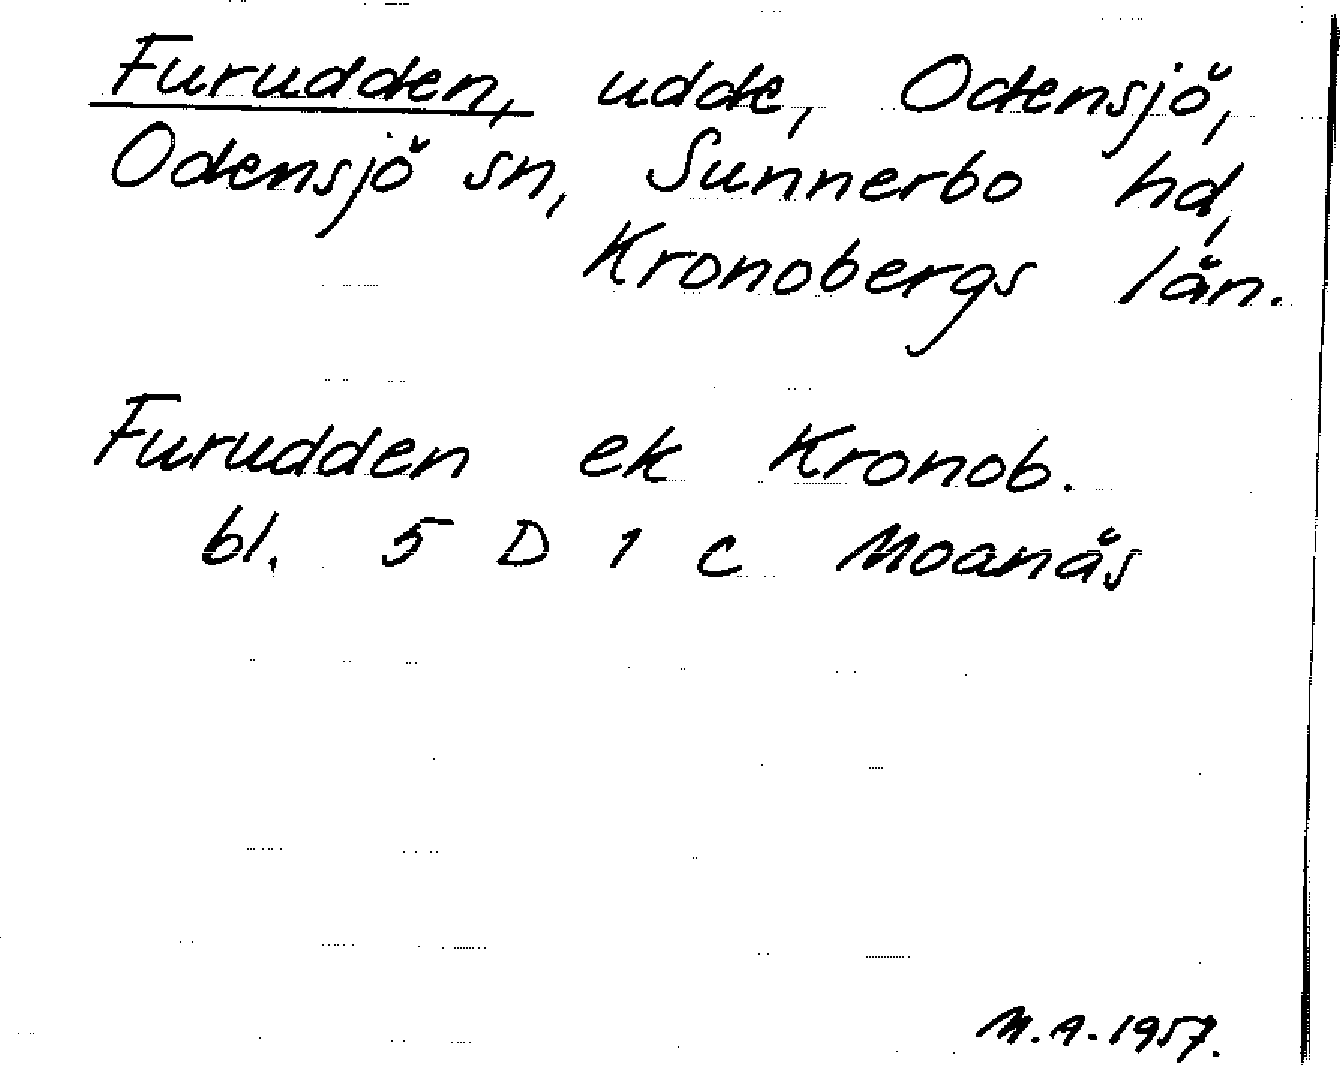 Furudden, udde, Odensjö,
Odensjö sn, Sunnerbo hd,
Kronobergs län.
Furudden ek Kronob.
bl. 5 D 1 c Moanäs
M.A. 1957.